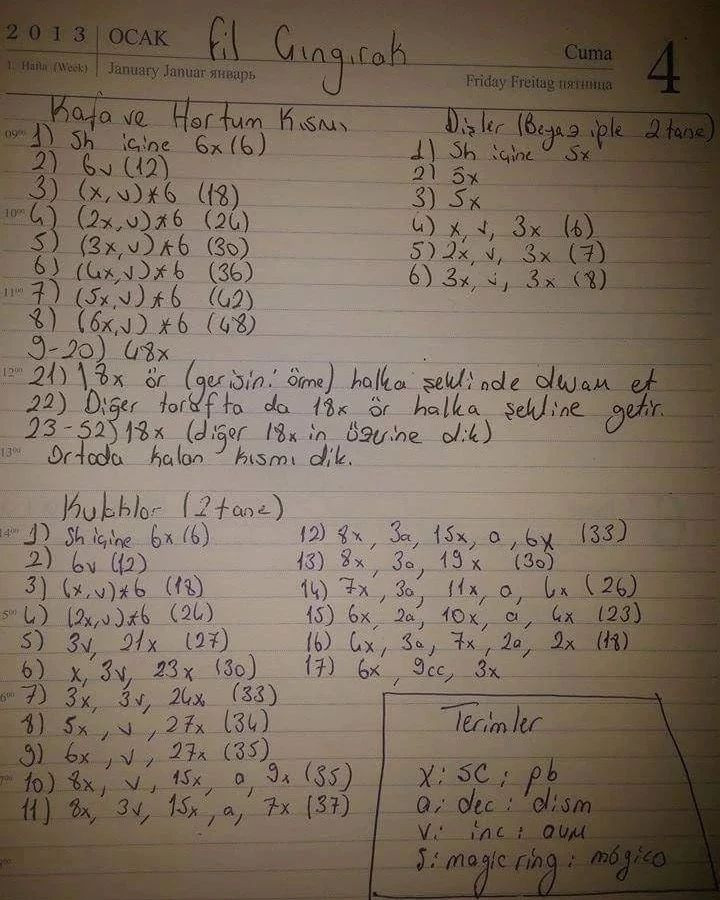 2013 OCAK Fil Çıngırak Cuma 4
1. Hafta (Week) January Januar январь Friday Freitag пятница
Kafa ve Hortum Kısmı
09⁰⁰ 1) Sh içine 6x (6)
2) 6v (12)
3) (x,v)*6 (18)
10⁰⁰ 4) (2x,v)*6 (24)
5) (3x,v)*6 (30)
6) (4x,v)*6 (36)
11⁰⁰ 7) (5x,v)*6 (42)
8) (6x,v)*6 (48)
9-20) 48x
12⁰⁰ 21) 18x ör (gerisini örme) halka şeklinde devam et
22) Diğer tarafta da 18x ör halka şekline getir.
23-52) 18x (diğer 18x in üzerine dik)
13⁰⁰ Ortada kalan kısmı dik.
Dişler (Beyaz iple 2 tane)
1) Sh içine 5x
2) 5x
3) 5x
4) x, v, 3x (6)
5) 2x, v, 3x (7)
6) 3x, v, 3x (8)
Kulaklar (2 tane)
14⁰⁰ 1) Sh içine 6x (6)
2) 6v (12)
3) (x,v)*6 (18)
5⁰⁰ 4) (2x,v)*6 (24)
5) 3v, 21x (27)
6) x, 3v, 23x (30)
6⁰⁰ 7) 3x, 3v, 24x (33)
8) 5x, v, 27x (34)
9) 6x, v, 27x (35)
7⁰⁰ 10) 8x, v, 15x, a, 9x (35)
11) 8x, 3v, 15x, a, 7x (37)
12) 8x, 3a, 15x, a, 6x (33)
13) 8x, 3a, 19x (30)
14) 7x, 3a, 11x, a, 4x (26)
15) 6x, 2a, 10x, a, 4x (23)
16) 4x, 3a, 7x, 2a, 2x (18)
17) 6x, 9cc, 3x
Terimler
X: SC: pb
a: dec: dism
v: inc: aum
S: magic ring: mágico